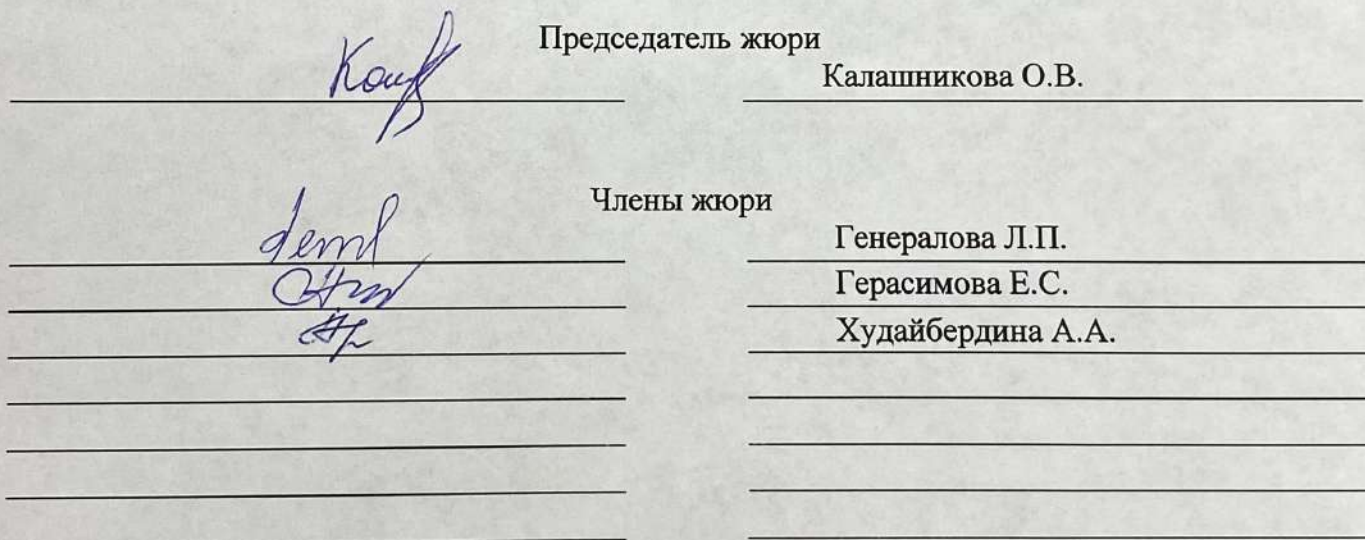 Председатель жюри
Калашникова О.В.
Члены жюри
Генералова Л.П.
Герасимова Е.С.
Худайбердина А.А.